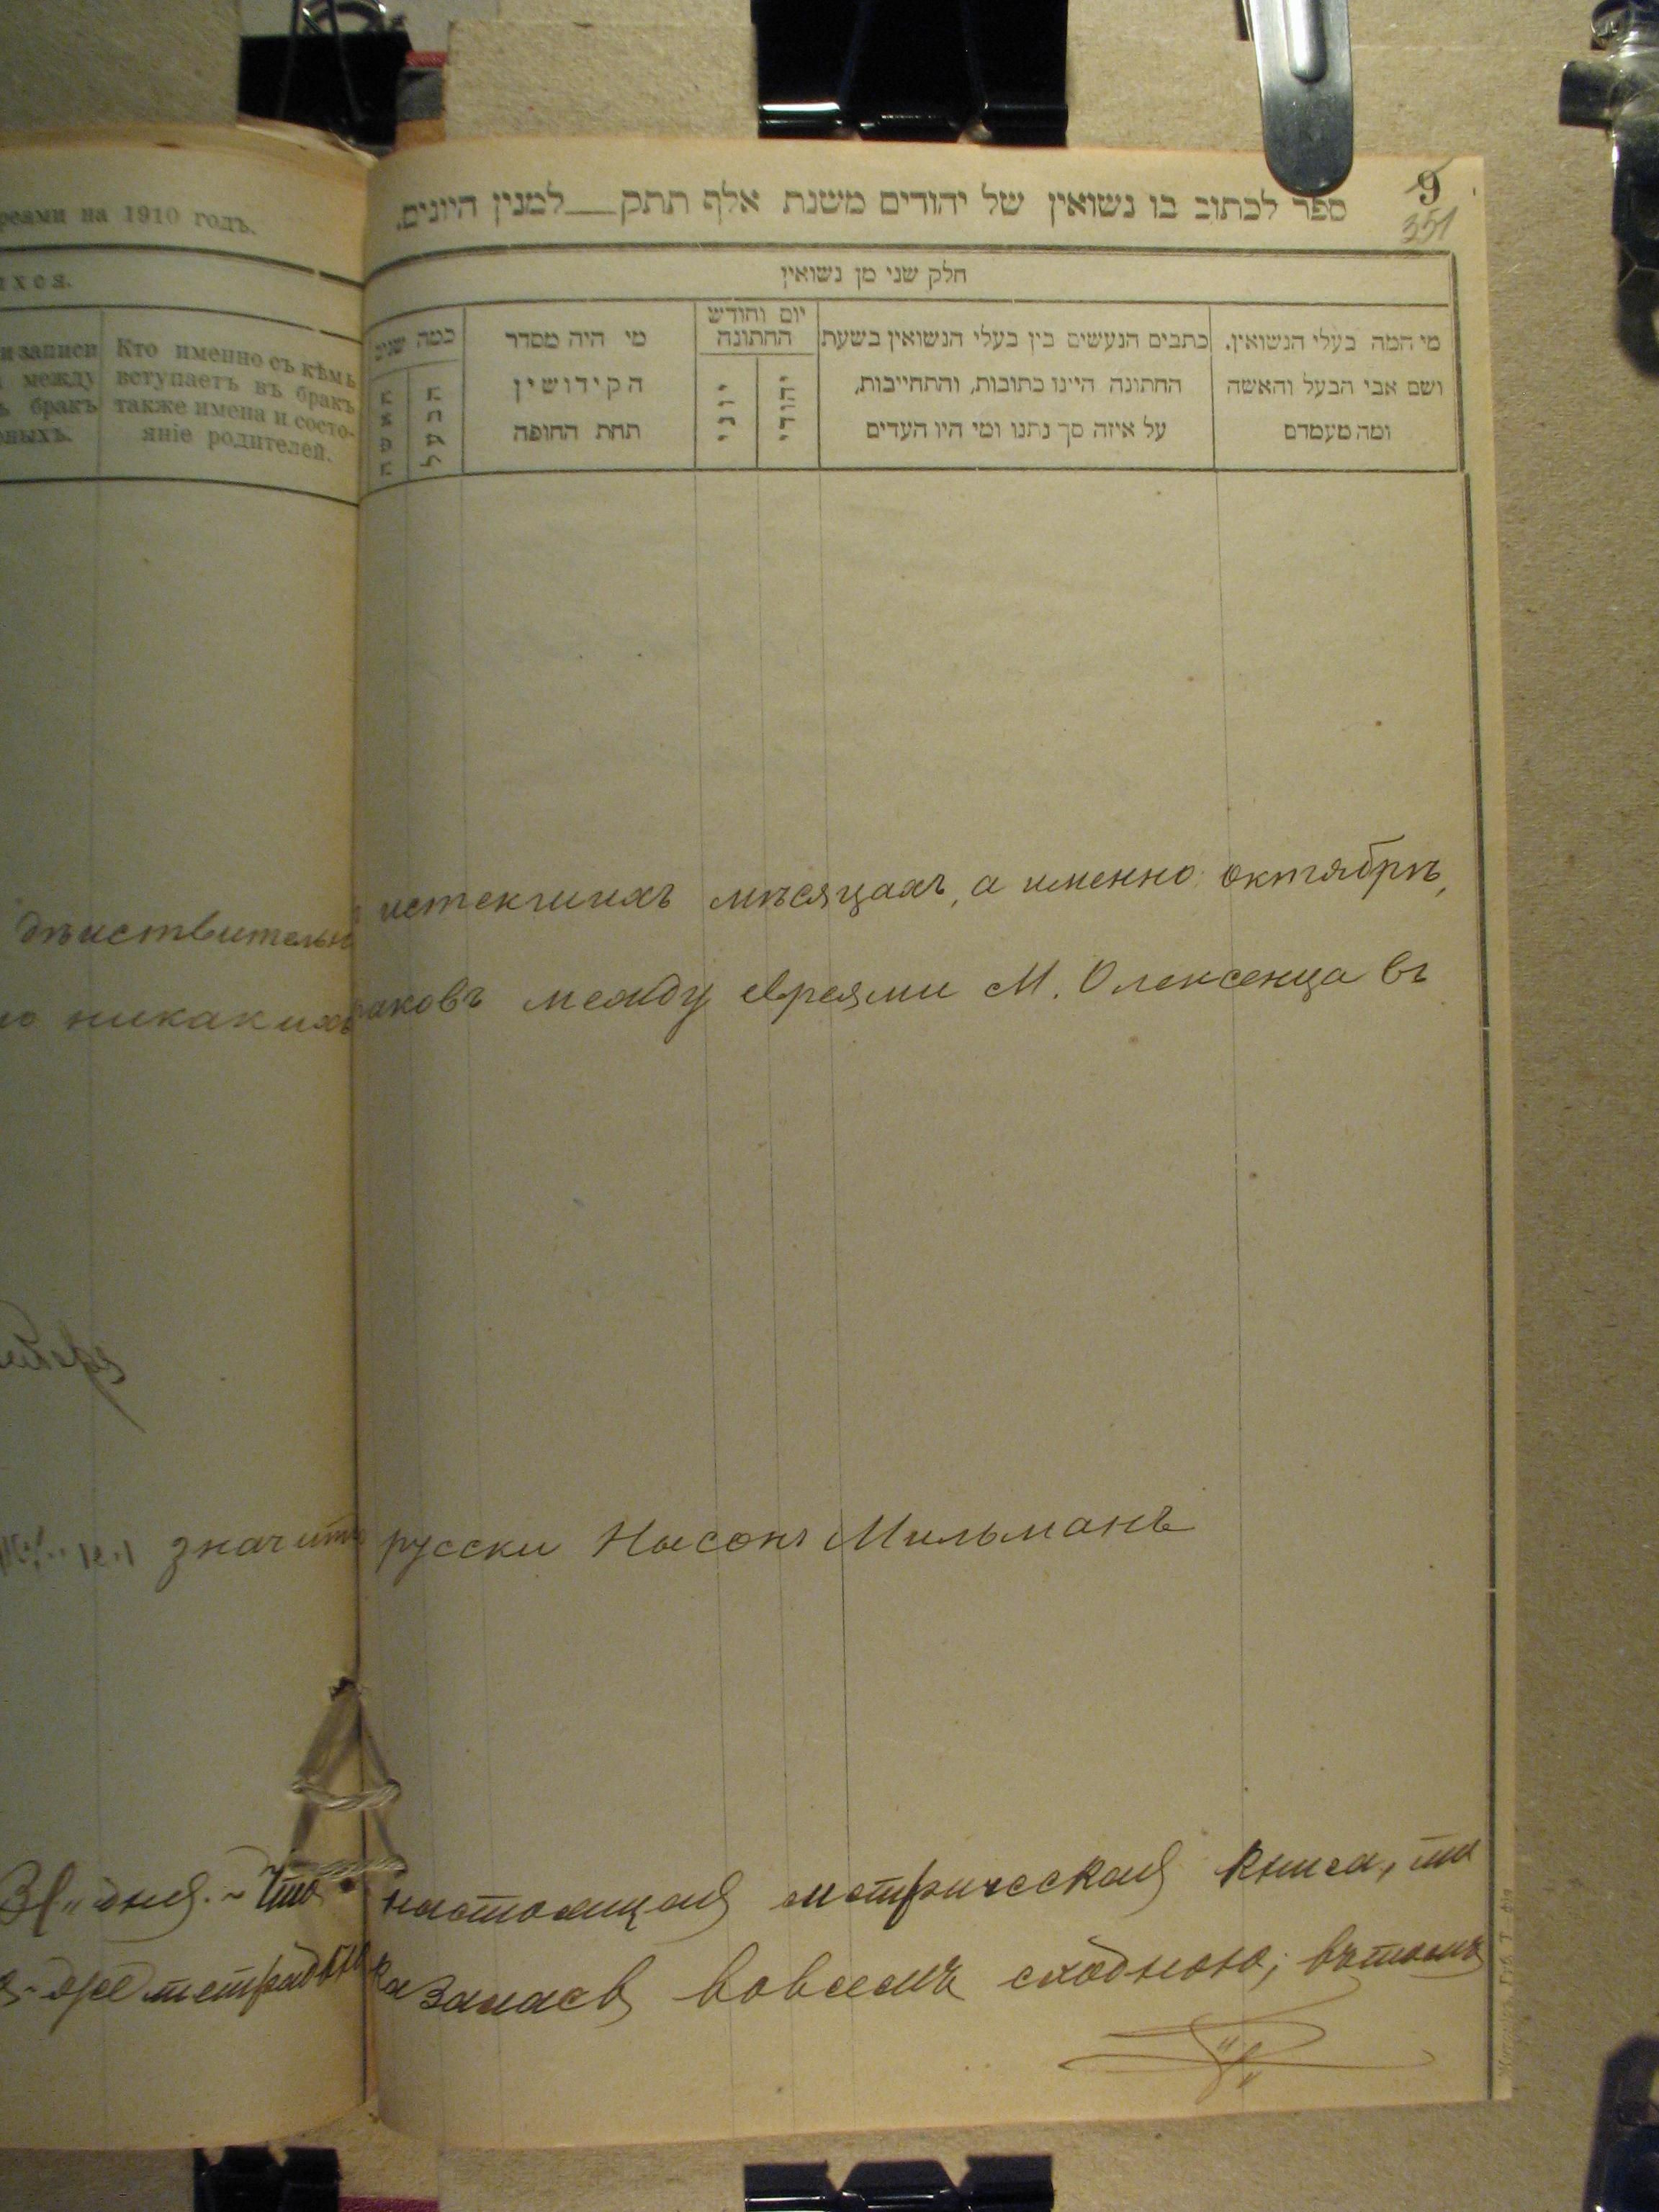 реями на 1910 годъ.
хся.
и записи
между
бракъ
Кто именно съ кѣмъ
вступаетъ въ бракъ
также имена и состо-
яніе родителей.
9
351
ספר לכתוב בו נשואין של יהודים משנת אלף תתק___למנין היונים.
חלק שני מן נשואין
מי המה בעלי הנשואין.
ושם אבי הבעל והאשה
ומה מעמדם
כתבים הנעשים בין בעלי הנשואין בשעת
החתונה היינו כתובות, והתחייבות,
על איזה סך נתנו ומי היו העדים
יום וחודש
החתונה
יהודי
יוני
מי היה מסדר
הקידושין
תחת החופה
כמה שנים
הבעל
האשה
истекшихъ мѣсяцахъ, а именно: октябрѣ,
никакихъ
раковъ между евреями М. Олексенца въ
значитъ русски Нисонъ Мильманъ
дня. Что настоящая метрическая книга, та
же тетрадь казалась вовсемъ сходною; въ томъ